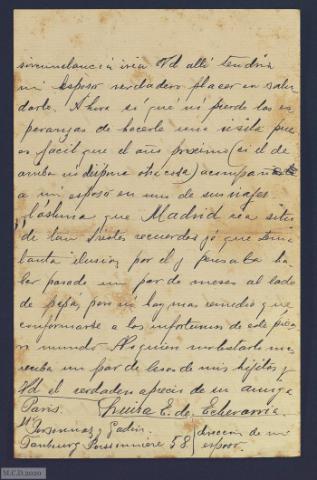 circunstancia iria Vd allí tendria
mi esposo verdadero placer en salu
darle. Ahora sí qué no pierdo las es
peranzas de hacerle una visita pues
es facil que el año proximo (si el de
arriba no dispone otra cosa) acompañe
a mi esposo en uno de sus viajes.
Lástima que Madrid sea sitio
de tan tristes recuerdos yo que tenia
tanta ilusion por el y pensaba ha
ber pasado un par de meses al lado
de pepa, pero no hay mas remedio que
conformarse a los infortunios de este pícaro
mundo No quiero molestarle mas
reciba un par de besos de mis hijitos y
Vd el verdadero aprecio de su amiga
Paris. Luisa E. de Echevarria.
Mr Personnaz y Gadin
Faubourg Poissonniere 58. direccion de mi
esposo.
M.C.D. 2020